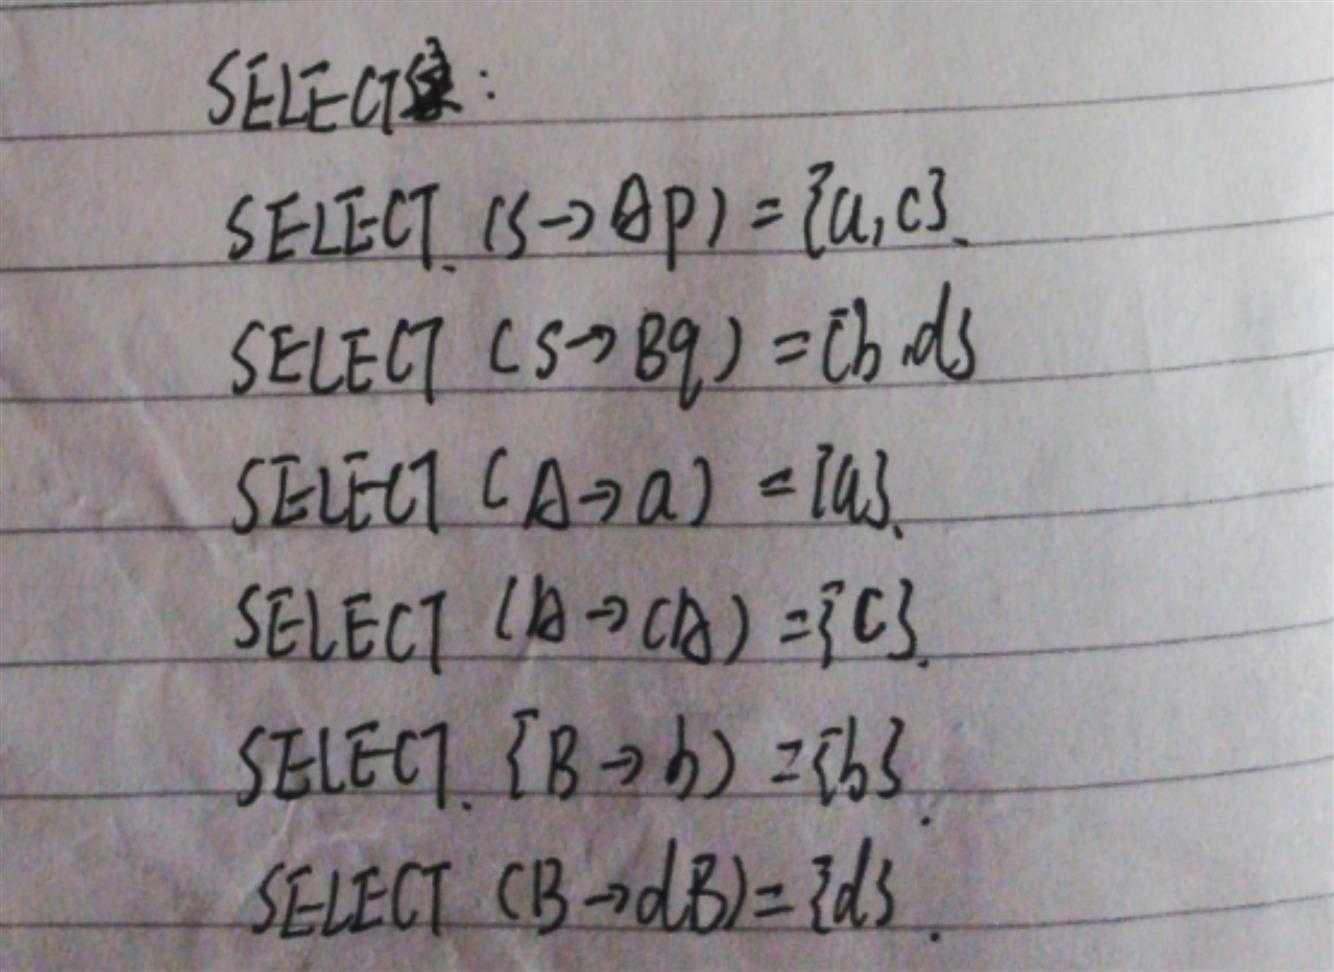 SELECT集:
SELECT. (S→Ap) = {a,c}.
SELECT (S→Bq) = {b.d}
SELECT (A→a) = {a}.
SELECT (A→cA) = {c}.
SELECT. {B→b) = {b}.
SELECT (B→dB) = {d}.